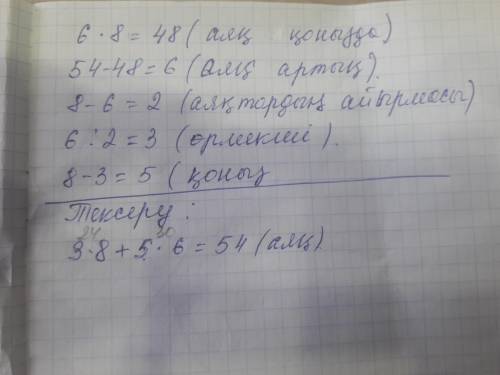 6 · 8 = 48 (аяқ қоңызда)
54-48=6 (аяқ артық).
8-6=2 (аяқтардың айырмасы)
6:2=3 (өрмекші).
8-3=5 (қоңыз
Тексеру:
24 30
3·8+5·6=54 (аяқ)